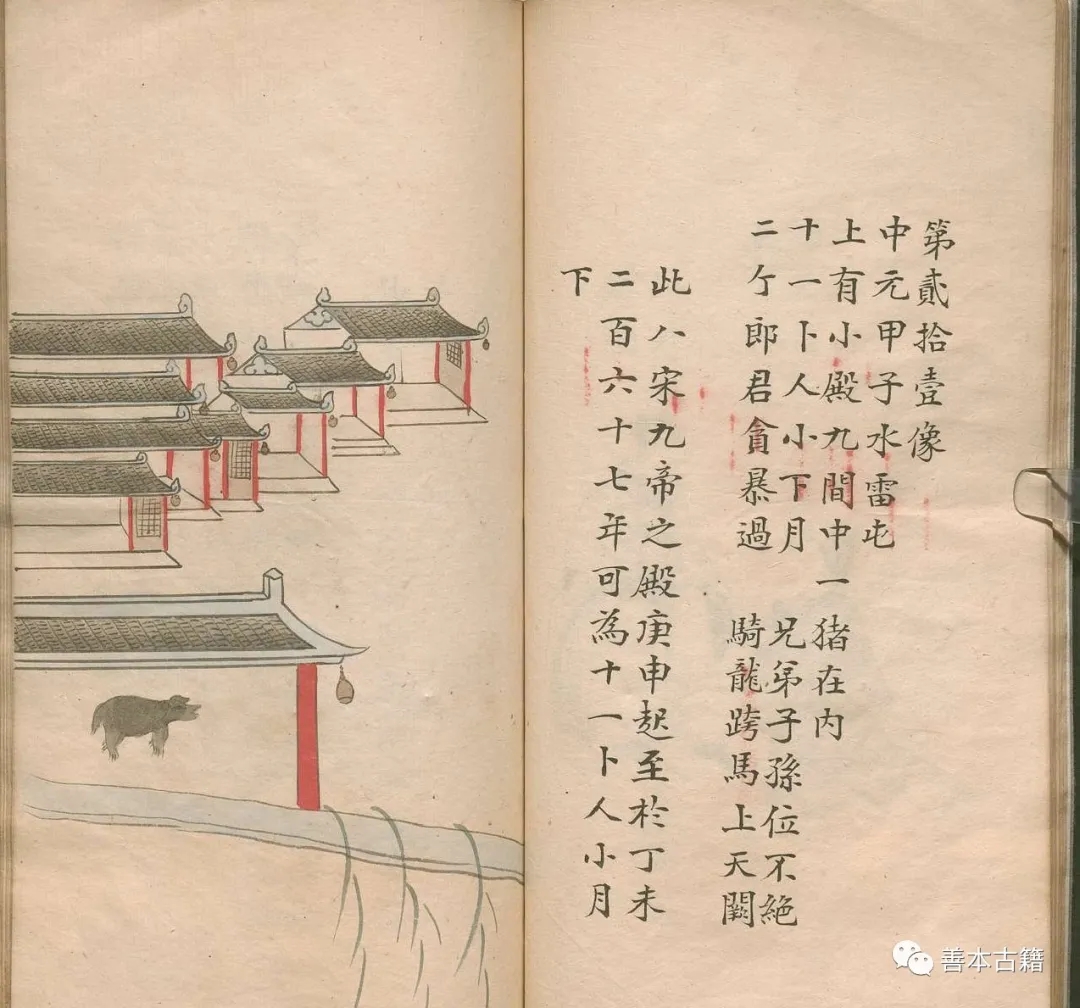 第貳拾壹像
中元甲子水雷屯
上有小殿九間中一猪在内
十一卜人小下月 兄弟子孫位不絶
二亇郎君貪暴過 騎龍跨馬上天闕
此八宋九帝之殿庚申起至於丁未
二百六十七年可為十一卜人小月
下
善本古籍